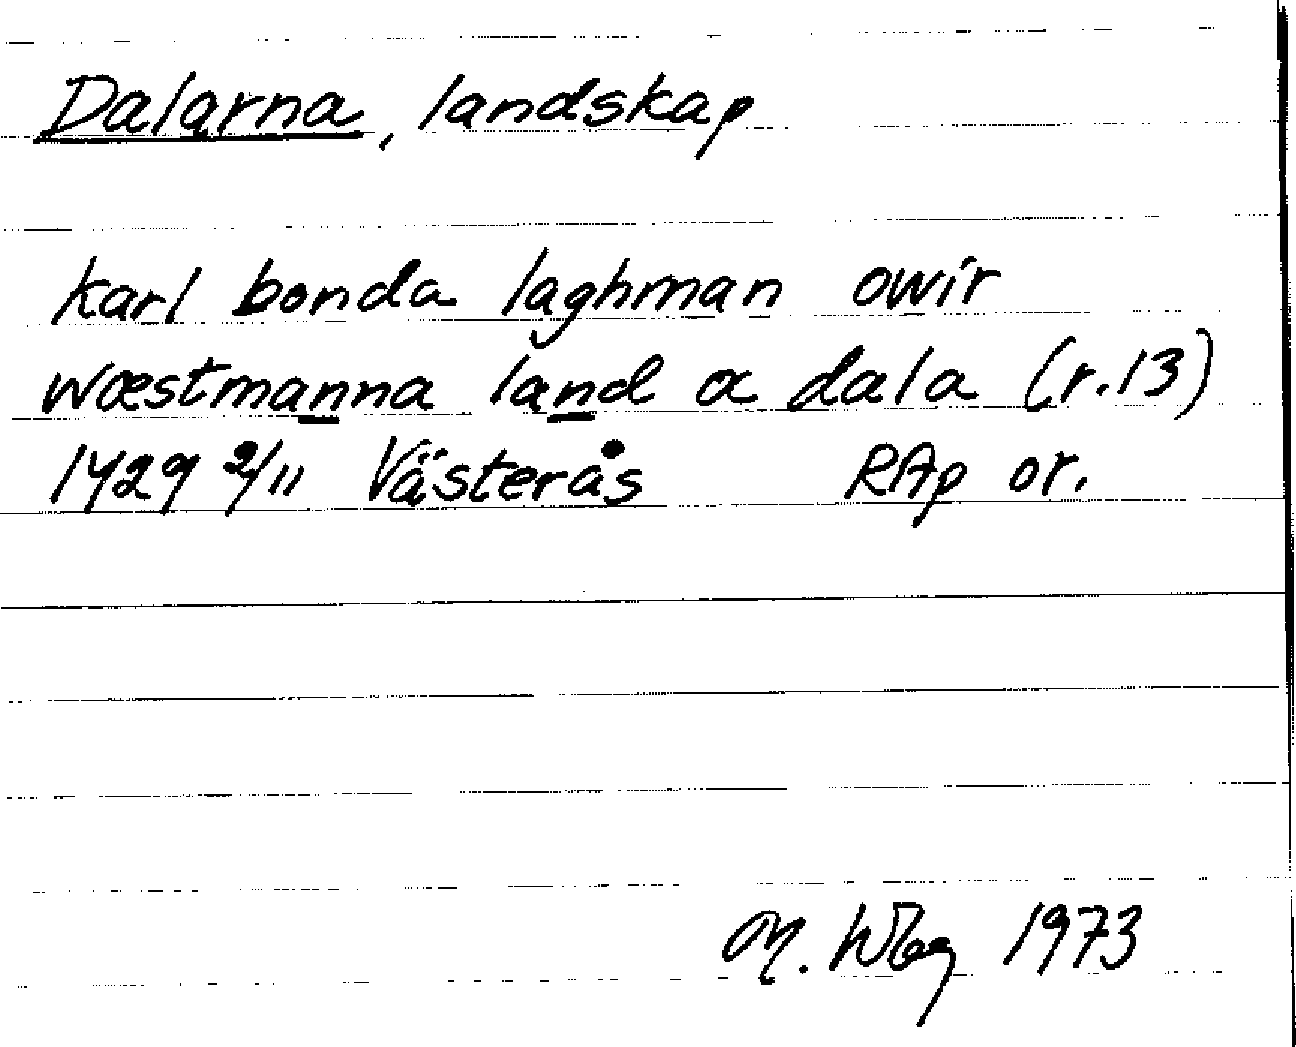 Dalarna, landskap
karl bonda laghman owir
wæstmanna land a dala (r.13)
1429 2/11 Västerås RAp or.
M. 1973